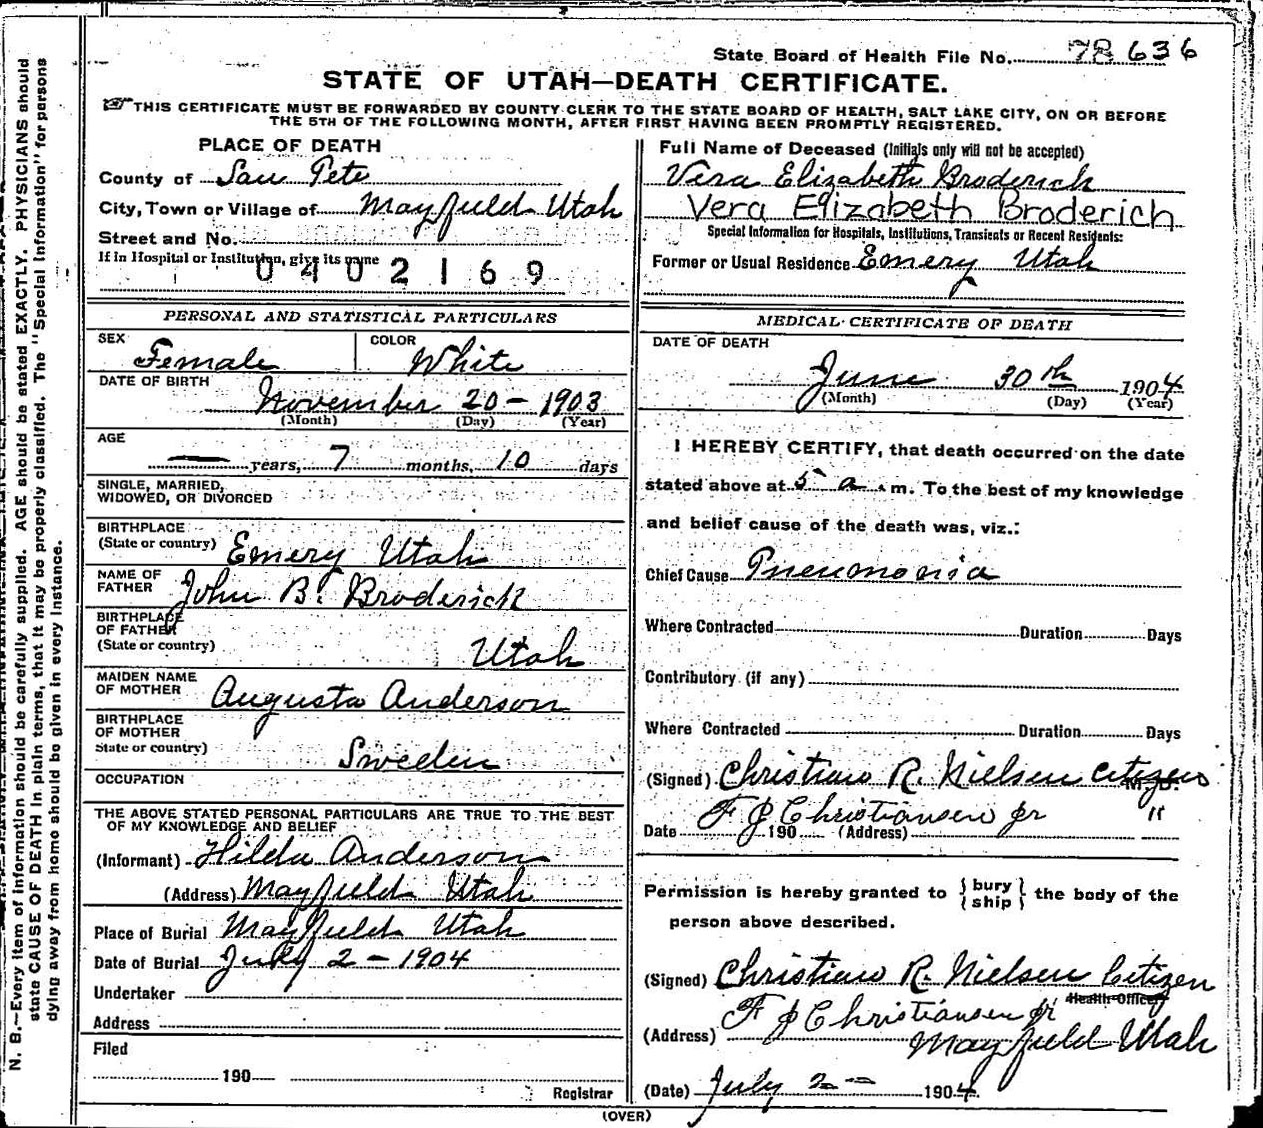 State Board of Health File No. 78636
STATE OF UTAH—DEATH CERTIFICATE.
THIS CERTIFICATE MUST BE FORWARDED BY COUNTY CLERK TO THE STATE BOARD OF HEALTH, SALT LAKE CITY, ON OR BEFORE
THE 5TH OF THE FOLLOWING MONTH, AFTER FIRST HAVING BEEN PROMPTLY REGISTERED.
N. B.—Every item of information should be carefully supplied. AGE should be stated EXACTLY. PHYSICIANS should
state CAUSE OF DEATH in plain terms, that it may be properly classified. The "Special Information" for persons
dying away from home should be given in every instance.
PLACE OF DEATH
County of San Pete
City, Town or Village of Mayfield Utah
Street and No.
If in Hospital or Institution, give its name
0402169
PERSONAL AND STATISTICAL PARTICULARS
SEX Female COLOR White
DATE OF BIRTH
November 20 – 1903
(Month) (Day) (Year)
AGE
— years, 7 months, 10 days
SINGLE, MARRIED,
WIDOWED, OR DIVORCED
BIRTHPLACE
(State or country) Emery Utah
NAME OF
FATHER John B. Broderick
BIRTHPLACE
OF FATHER
(State or country) Utah
MAIDEN NAME
OF MOTHER Augusta Anderson
BIRTHPLACE
OF MOTHER
State or country) Sweden
OCCUPATION
THE ABOVE STATED PERSONAL PARTICULARS ARE TRUE TO THE BEST
OF MY KNOWLEDGE AND BELIEF
(Informant) Hilda Anderson
(Address) Mayfield Utah
Place of Burial Mayfield Utah
Date of Burial July 2 – 1904
Undertaker
Address
Filed
190
Registrar
Full Name of Deceased (Initials only will not be accepted)
Vera Elizabeth Broderick
Vera Elizabeth Broderich
Special Information for Hospitals, Institutions, Transients or Recent Residents:
Former or Usual Residence Emery Utah
MEDICAL CERTIFICATE OF DEATH
DATE OF DEATH
June 30th 1904
(Month) (Day) (Year)
I HEREBY CERTIFY, that death occurred on the date
stated above at 5 a .m. To the best of my knowledge
and belief cause of the death was, viz.:
Chief Cause Pneumonia
Where Contracted Duration Days
Contributory (if any)
Where Contracted Duration Days
(Signed) Christian R. Nielsen Citizens M. D.
F J Christiansen Jr "
Date 190 (Address)
Permission is hereby granted to {bury ship} the body of the
person above described.
(Signed) Christian R. Nielsen Citizen
Health Officer
F J Christiansen Jr
(Address) Mayfield Utah
(Date) July 2 – 1904
(OVER)